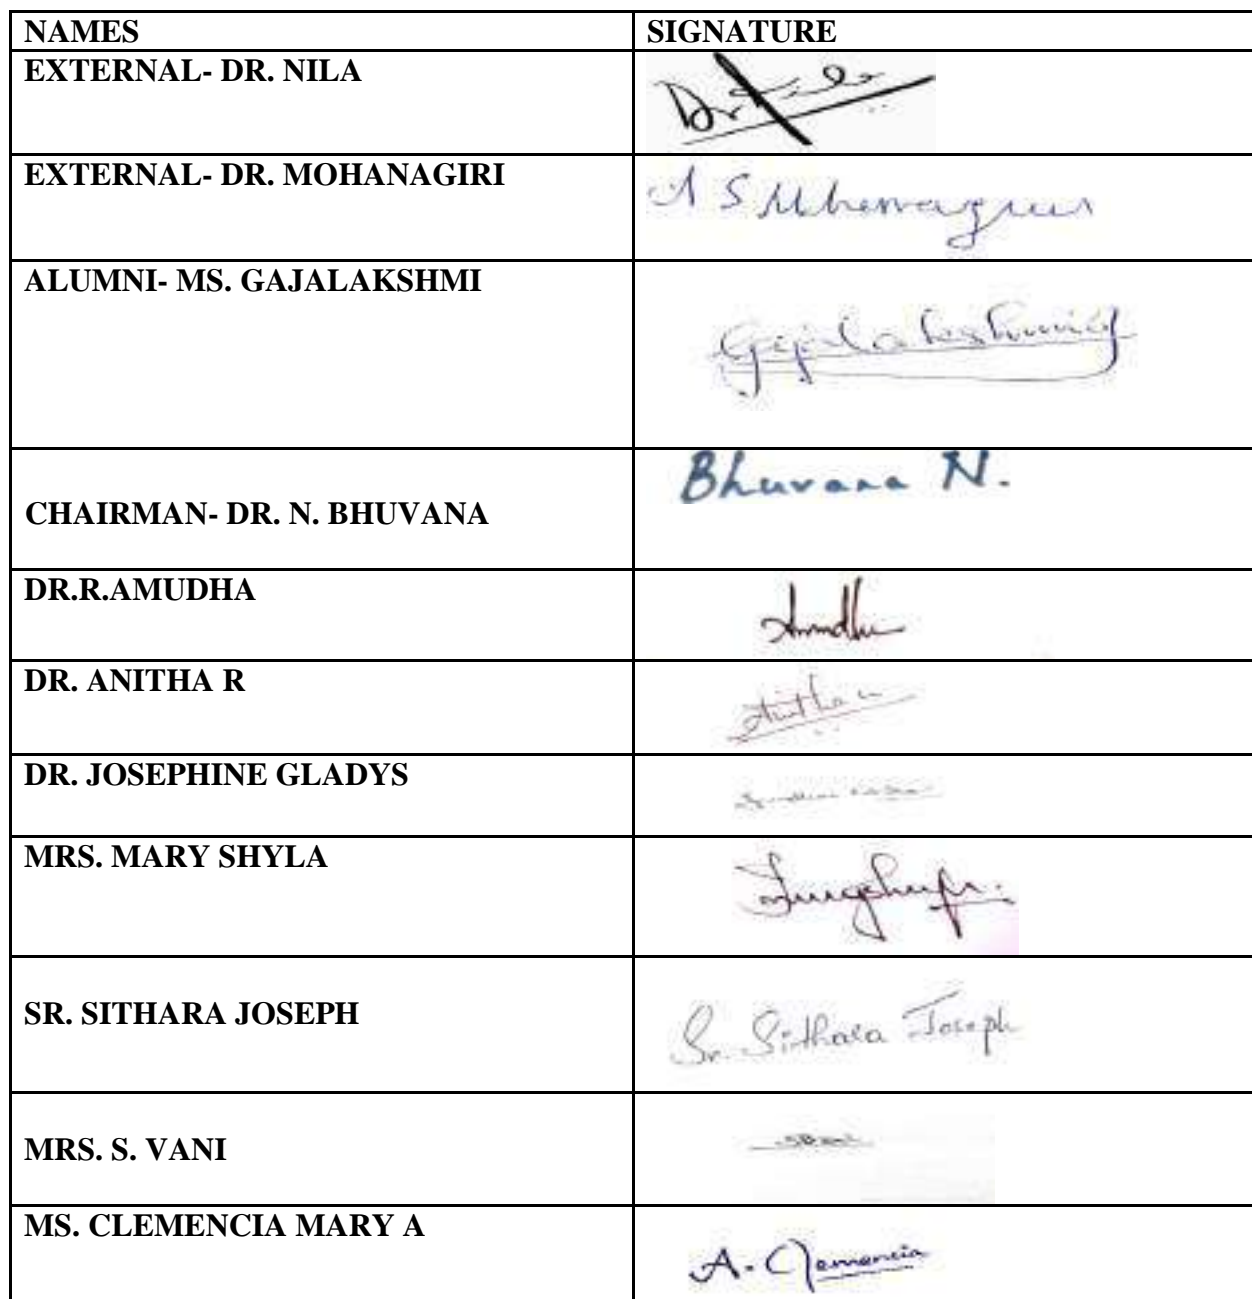 NAMES SIGNATURE
EXTERNAL- DR. NILA
Dr Nila
EXTERNAL- DR. MOHANAGIRI
ALUMNI- MS. GAJALAKSHMI
Gajalakshmi
CHAIRMAN- DR. N. BHUVANA
Bhuvana N.
DR.R.AMUDHA
Amudha
DR. ANITHA R
Anitha
DR. JOSEPHINE GLADYS
MRS. MARY SHYLA
SR. SITHARA JOSEPH
Sr. Sithara Joseph
MRS. S. VANI
MS. CLEMENCIA MARY A
A. Clemencia